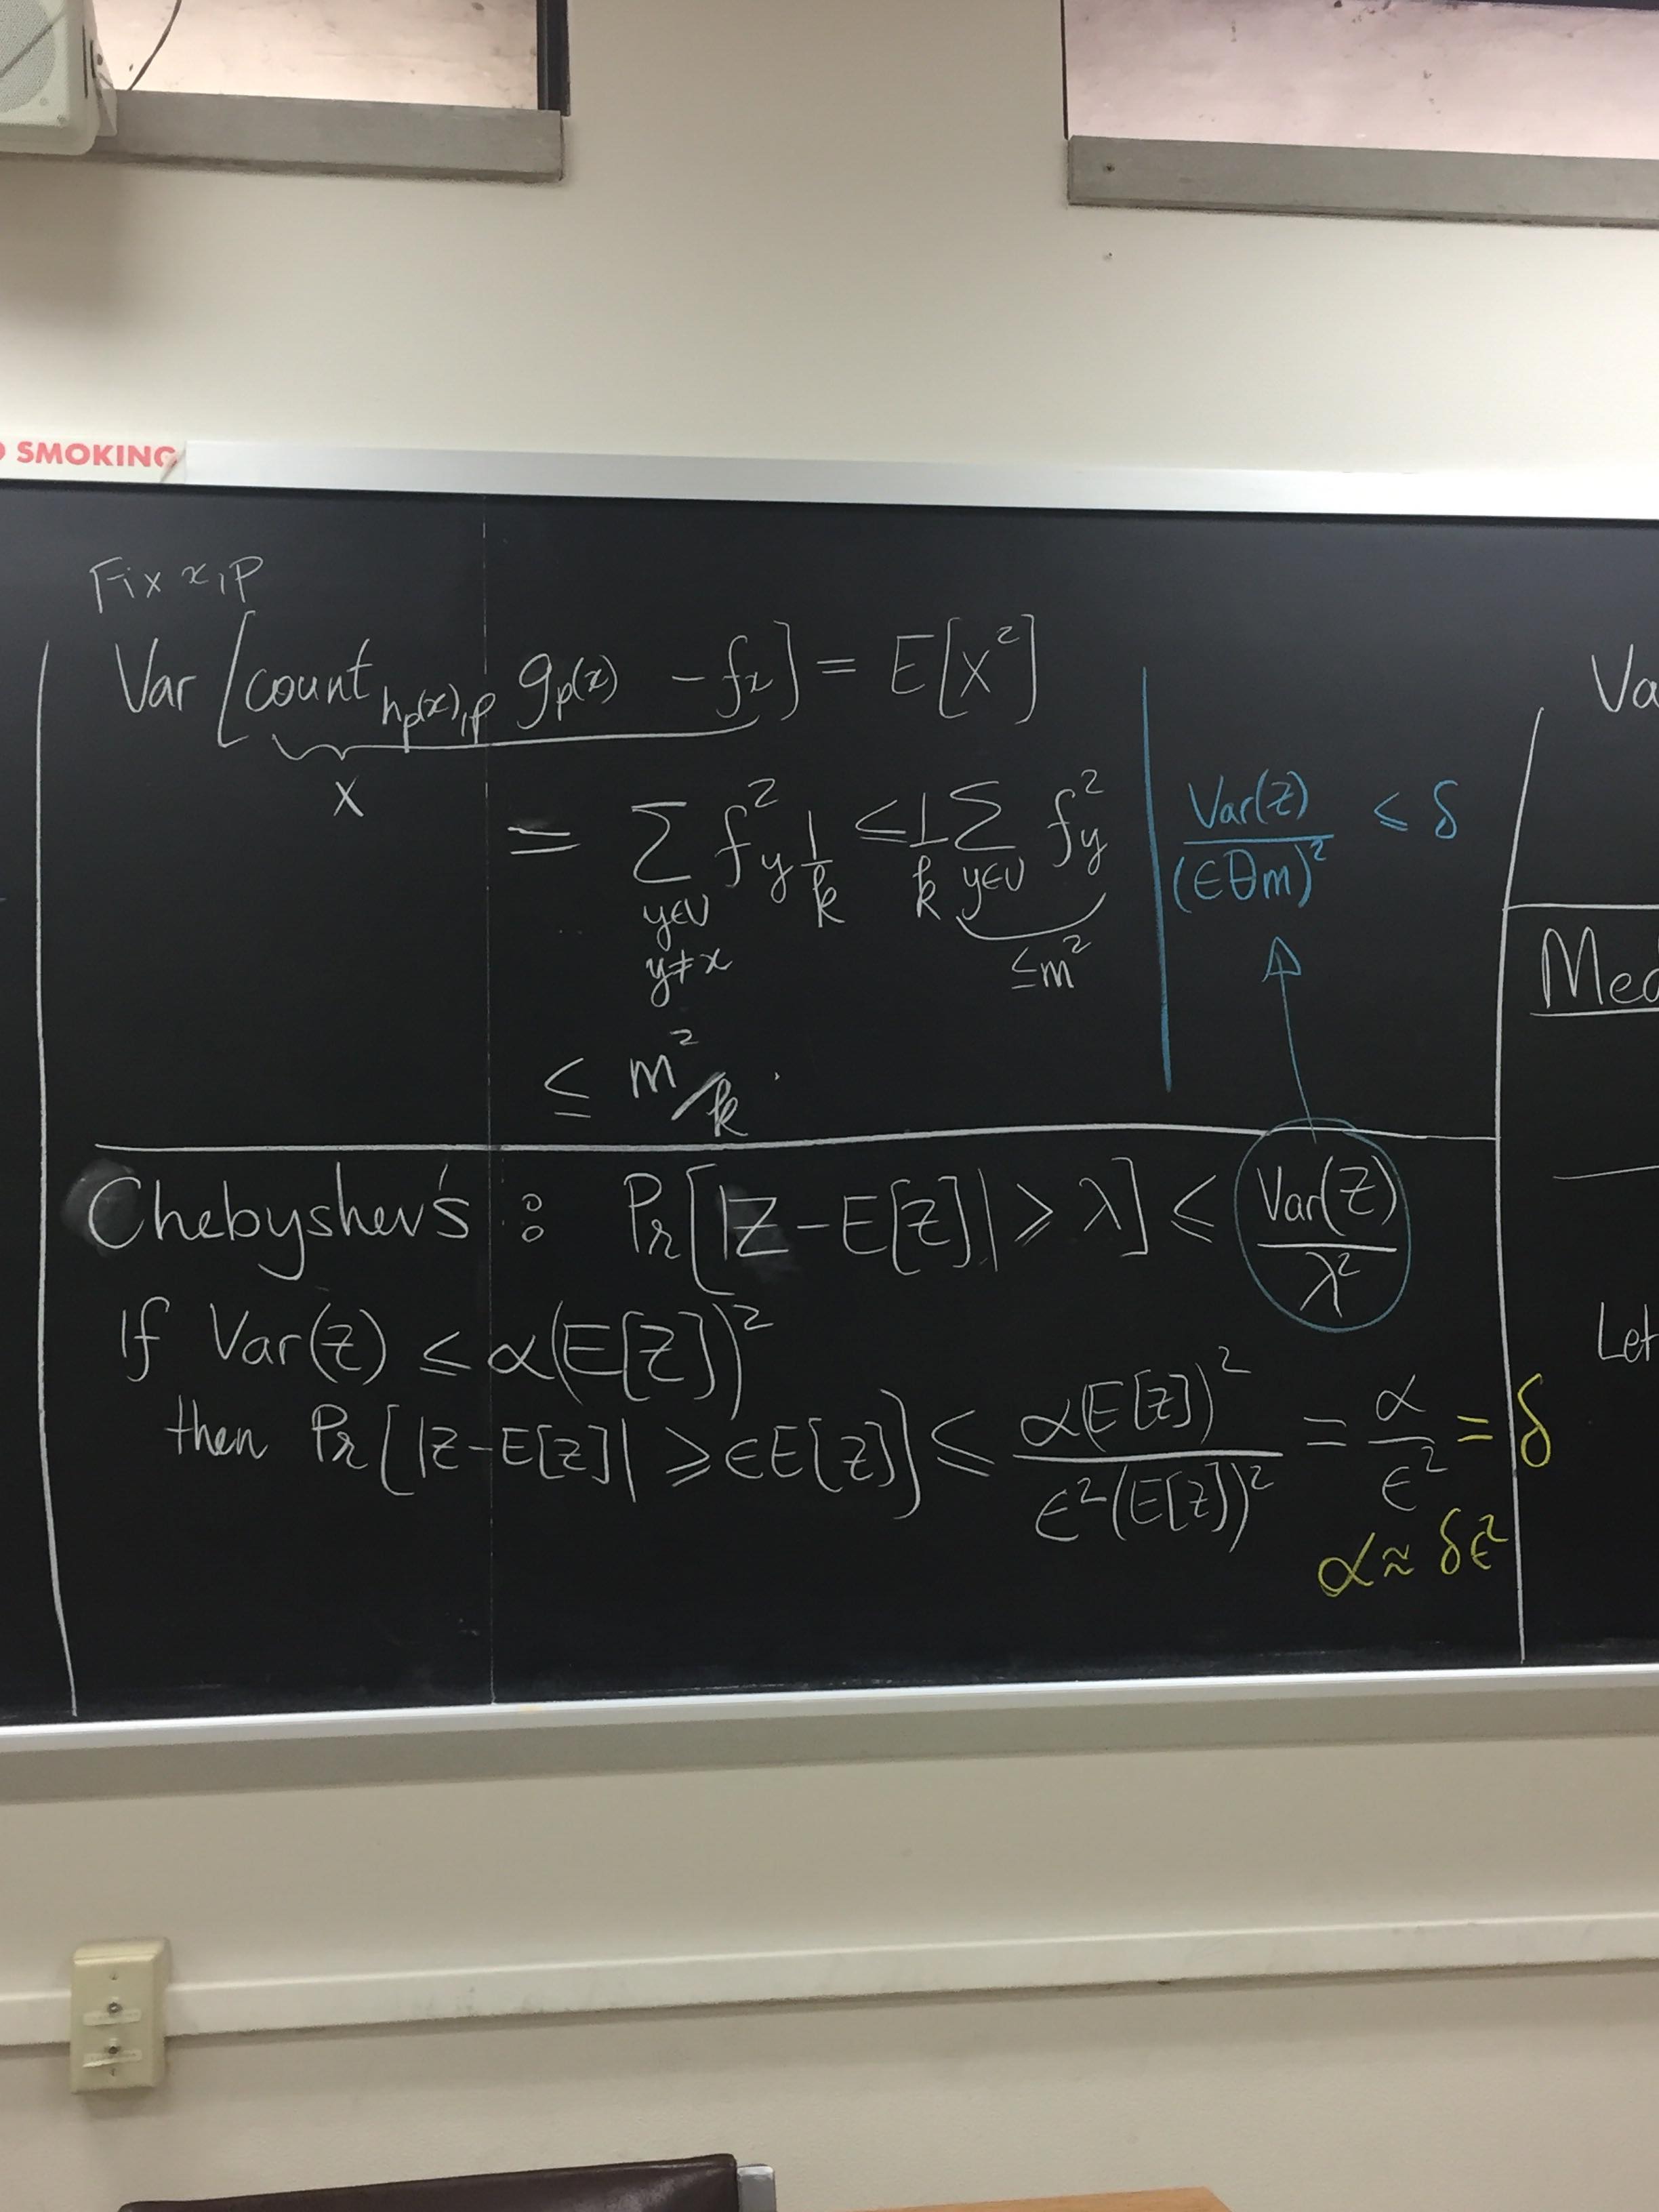 SMOKING
Fix x, p
Var [count_{h_p(x), p} g_p(x) - f_x] = E[X²]
X
= Σ_{y∈U, y≠x} f_y² 1/k ≤ 1/k Σ_{y∈U} f_y²
≤ m²
≤ m²/k.
Var(Z)/(∈θm)² ≤ δ
Chebyshev's : Pr[|Z-E[Z]| ≥ λ] ≤ Var(Z)/λ²
If Var(Z) ≤ α(E[Z])²
then Pr[|Z-E[Z]| ≥ ∈E[Z]] ≤ α(E[Z])²/∈²(E[Z])² = α/∈² = δ
α ≈ δ∈²
Va
Med
Let